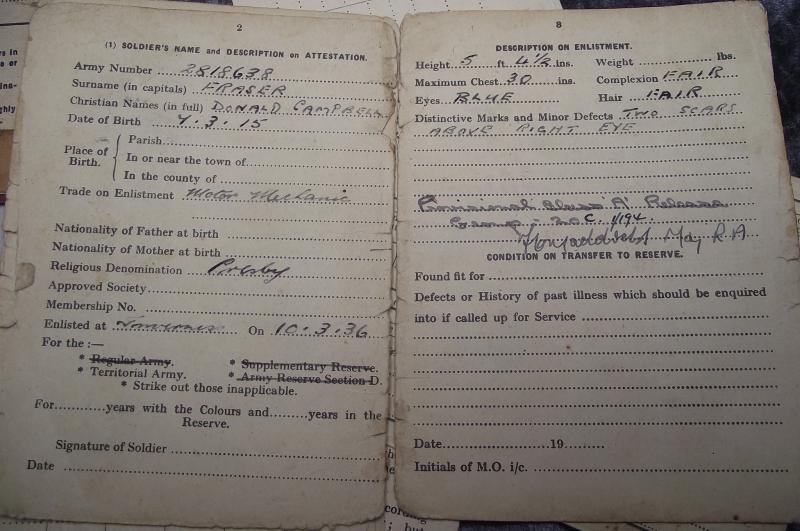 2
(1) SOLDIER'S NAME and DESCRIPTION on ATTESTATION.
Army Number 2818638
Surname (in capitals) FRASER
Christian Names (in full) DONALD CAMPBELL
Date of Birth 7.3.15
Place of Birth.
Parish
In or near the town of
In the county of
Trade on Enlistment Motor Mechanic
Nationality of Father at birth
Nationality of Mother at birth
Religious Denomination Presby
Approved Society
Membership No.
Enlisted at Inverness On 10.3.36
For the :—
* Regular Army. * Supplementary Reserve.
* Territorial Army. * Army Reserve Section D.
* Strike out those inapplicable.
For............years with the Colours and.........years in the
Reserve.
Signature of Soldier
Date
8
DESCRIPTION ON ENLISTMENT.
Height 5 ft. 4½ ins. Weight lbs.
Maximum Chest 30 ins. Complexion FAIR
Eyes BLUE Hair FAIR
Distinctive Marks and Minor Defects TWO SCARS
ABOVE RIGHT EYE
Provisional Class 'A' Release
Group
Maj R.A.
CONDITION ON TRANSFER TO RESERVE.
Found fit for
Defects or History of past illness which should be enquired
into if called up for Service
Date 19
Initials of M.O. i/c.